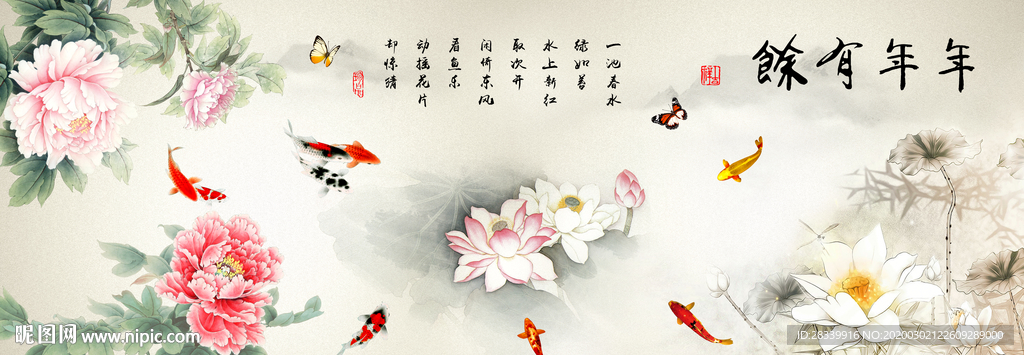 年年有餘
一池春水
绿如苔
水上新红
取次开
闲倚东风
看鱼乐
动摇花片
却惊猜
昵图网 www.nipic.com
ID:28339916 NO:20200302122609289000